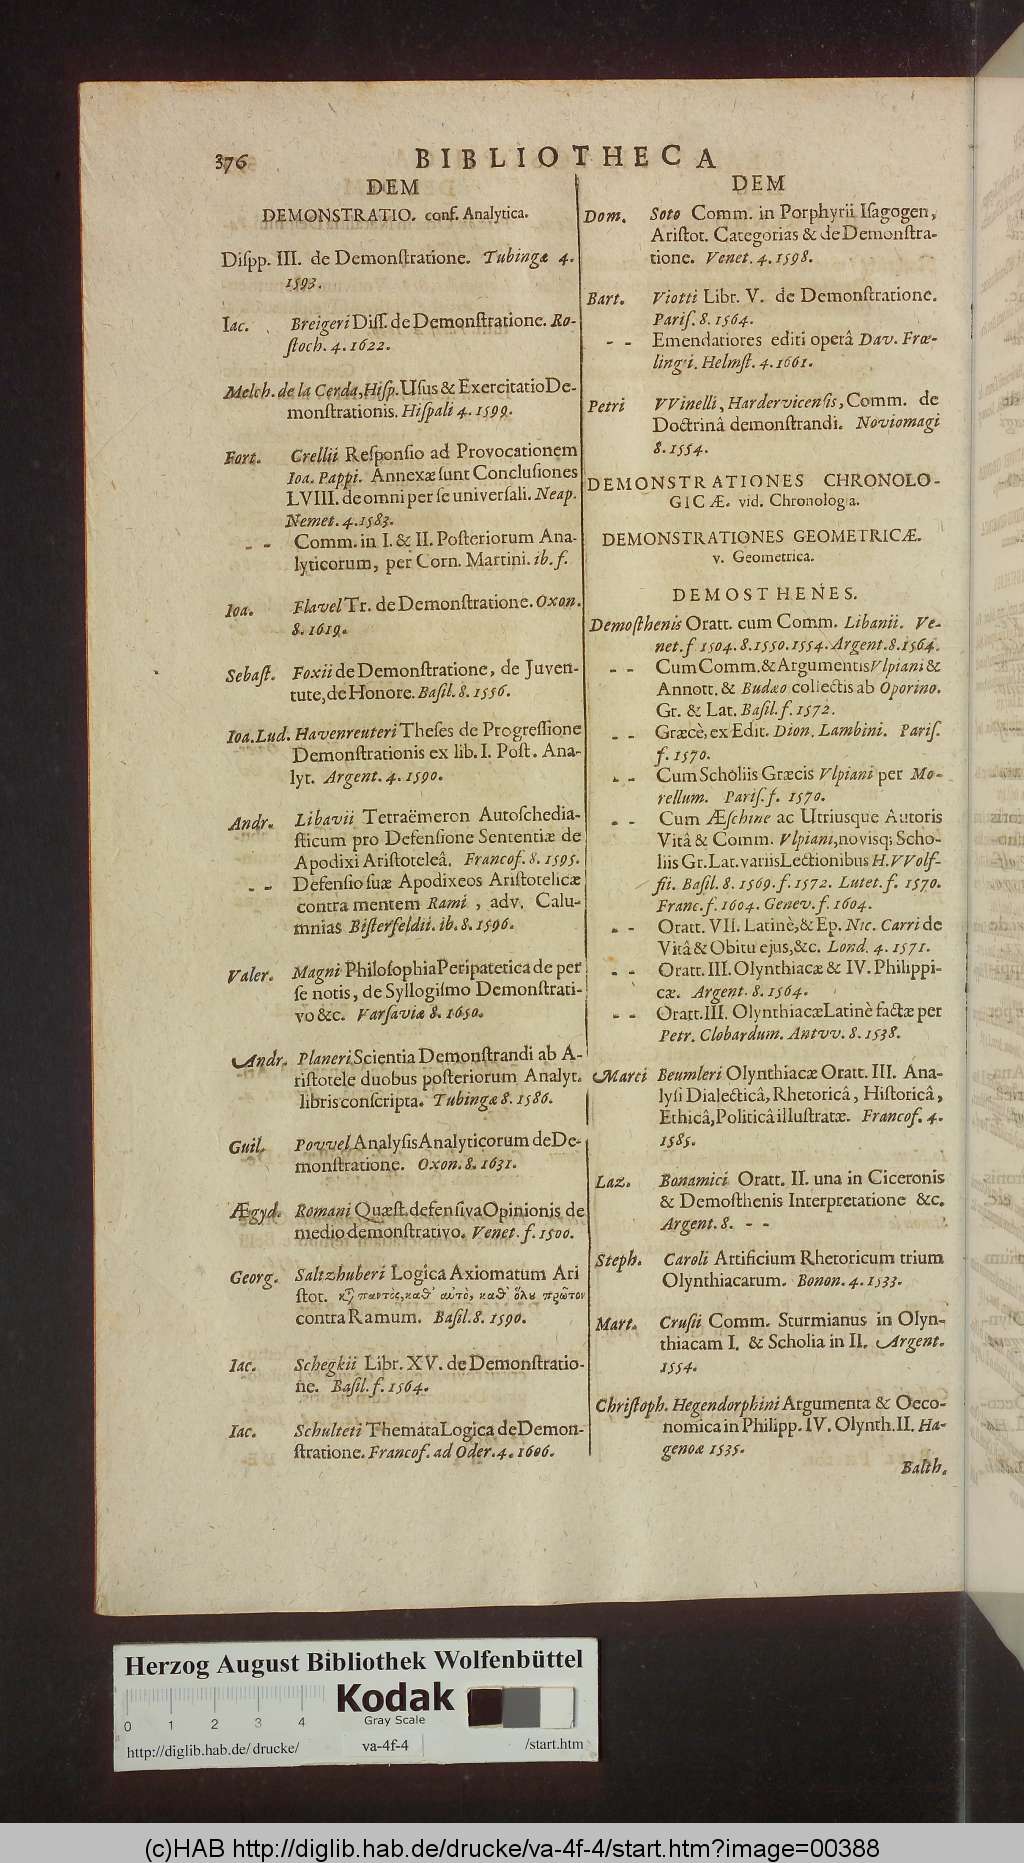 376
BIBLIOTHECA
DEM
DEMONSTRATIO. conf. Analytica.
Diſpp. III. de Demonſtratione. Tubingæ 4.
1593.
Iac. Breigeri Diſſ. de Demonſtratione. Ro-
ſtoch. 4. 1622.
Melch. de la Cerda, Hiſp. Uſus & Exercitatio De-
monſtrationis. Hiſpali 4. 1599.
Fort. Crellii Reſponſio ad Provocationem
Ioa. Pappi. Annexæ ſunt Concluſiones
LVIII. de omni per ſe univerſali. Neap.
Nemet. 4. 1583.
- - Comm. in I. & II. Poſteriorum Ana-
lyticorum, per Corn. Martini. ib. f.
Ioa. Flavel Tr. de Demonſtratione. Oxon.
8. 1619.
Sebaſt. Foxii de Demonſtratione, de Juven-
tute, de Honore. Baſil. 8. 1556.
Ioa. Lud. Havenreuteri Theſes de Progreſſione
Demonſtrationis ex lib. I. Poſt. Ana-
lyt. Argent. 4. 1590.
Andr. Libavii Tetraëmeron Autoſchedia-
ſticum pro Defenſione Sententiæ de
Apodixi Ariſtoteleâ. Francof. 8. 1595.
- - Defenſio ſuæ Apodixeos Ariſtotelicæ
contra mentem Rami, adv. Calu-
mnias Biſterfeldii. ib. 8. 1596.
Valer. Magni Philoſophia Peripatetica de per
ſe notis, de Syllogiſmo Demonſtrati-
vo &c. Varſaviæ 8. 1650.
Andr. Planeri Scientia Demonſtrandi ab A-
riſtotele duobus poſteriorum Analyt.
libris conſcripta. Tubingæ 8. 1586.
Guil. Povvel Analyſis Analyticorum de De-
monſtratione. Oxon. 8. 1631.
Ægyd. Romani Quæſt. defenſiva Opinionis de
medio demonſtrativo. Venet. f. 1500.
Georg. Saltzhuberi Logica Axiomatum Ari
ſtot. κτ̃ παντὸς, καθ' αὑτὸ, καθ' ὅλȣ πρῶτον
contra Ramum. Baſil. 8. 1590.
Iac. Schegkii Libr. XV. de Demonſtratio-
ne. Baſil. f. 1564.
Iac. Schulteti Themata Logica de Demon-
ſtratione. Francof. ad Oder. 4. 1606.
DEM
Dom. Soto Comm. in Porphyrii Iſagogen,
Ariſtot. Categorias & de Demonſtra-
tione. Venet. 4. 1598.
Bart. Viotti Libr. V. de Demonſtratione.
Pariſ. 8. 1564.
- - Emendatiores editi operâ Dav. Frœ-
lingii. Helmſt. 4. 1661.
Petri VVinelli, Hardervicenſis, Comm. de
Doctrinâ demonſtrandi. Noviomagi
8. 1554.
DEMONSTRATIONES CHRONOLO-
GICÆ. vid. Chronologia.
DEMONSTRATIONES GEOMETRICÆ.
v. Geometrica.
DEMOSTHENES.
Demoſthenis Oratt. cum Comm. Libanii. Ve-
net. f 1504. 8. 1550. 1554. Argent. 8. 1564.
- - Cum Comm. & Argumentis Vlpiani &
Annott. & Budæo collectis ab Oporino.
Gr. & Lat. Baſil. f. 1572.
- - Græcè, ex Edit. Dion. Lambini. Pariſ.
f. 1570.
- - Cum Scholiis Græcis Vlpiani per Mo-
rellum. Pariſ. f. 1570.
- - Cum Æſchine ac Utriusque Autoris
Vitâ & Comm. Vlpiani, novisq; Scho-
liis Gr. Lat. variis Lectionibus H. VVolf-
fii. Baſil. 8. 1569. f. 1572. Lutet. f. 1570.
Franc. f. 1604. Genev. f. 1604.
- - Oratt. VII. Latinè, & Ep. Nic. Carri de
Vitâ & Obitu ejus, &c. Lond. 4. 1571.
- - Oratt. III. Olynthiacæ & IV. Philippi-
cæ. Argent. 8. 1564.
- - Oratt. III. Olynthiacæ Latinè factæ per
Petr. Clobardum. Antvv. 8. 1538.
Marci Beumleri Olynthiacæ Oratt. III. Ana-
lyſi Dialecticâ, Rhetoricâ, Hiſtoricâ,
Ethicâ, Politicâ illuſtratæ. Francof. 4.
1585.
Laz. Bonamici Oratt. II. una in Ciceronis
& Demoſthenis Interpretatione &c.
Argent. 8. - -
Steph. Caroli Artificium Rhetoricum trium
Olynthiacarum. Bonon. 4. 1533.
Mart. Cruſii Comm. Sturmianus in Olyn-
thiacam I. & Scholia in II. Argent.
1554.
Chriſtoph. Hegendorphini Argumenta & Oeco-
nomica in Philipp. IV. Olynth. II. Ha-
genoæ 1535.
Balth.
Herzog August Bibliothek Wolfenbüttel
Kodak
Gray Scale
0 1 2 3 4
http://diglib.hab.de/drucke/ va-4f-4 /start.htm
(c)HAB http://diglib.hab.de/drucke/va-4f-4/start.htm?image=00388